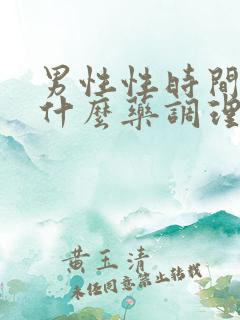 男性性時間
什麼藥調理
黄玉清
未经同意禁止转载